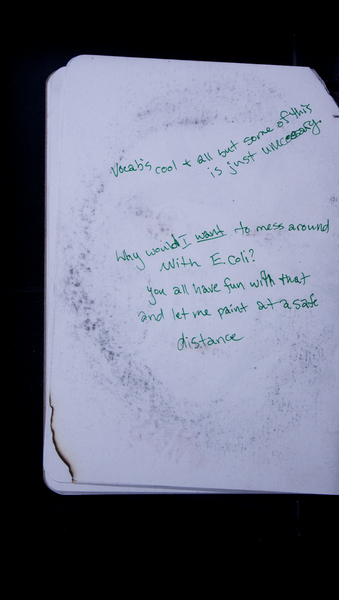 Vocab's cool + all but some of this
is just unnecessary.
Why would I want to mess around
with E.Coli?
you all have fun with that
and let me paint at a safe
distance